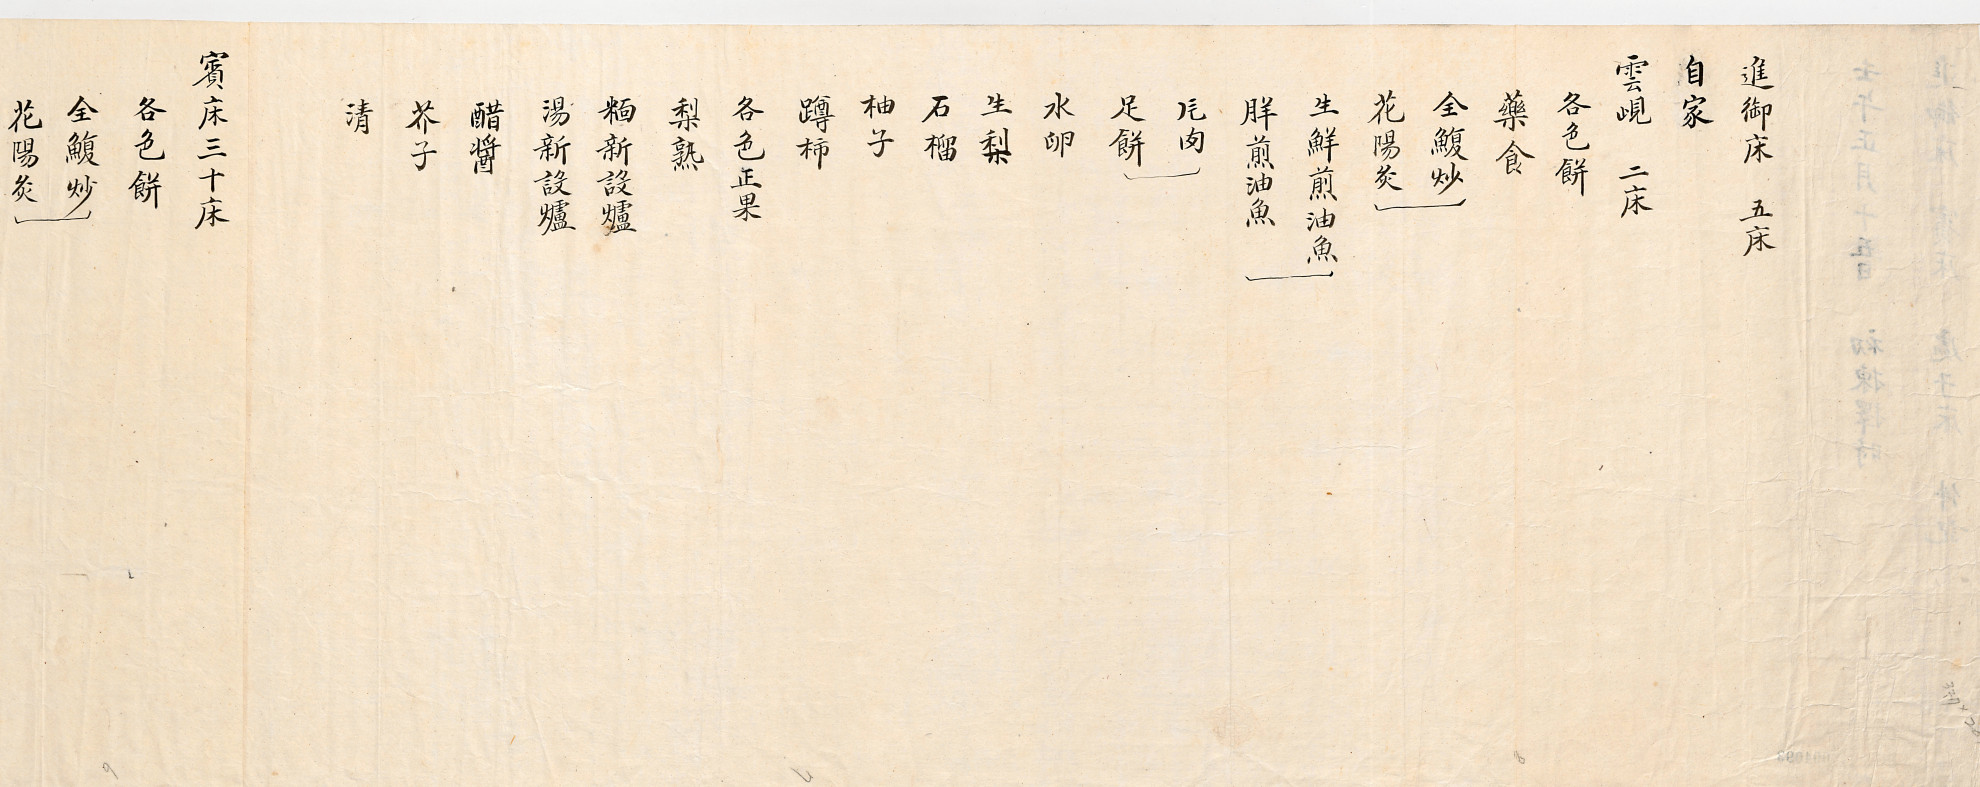 進御床 五床
自家
雲峴 二床
各色餠
藥食
全鰒炒
花陽炙
生鮮煎油魚
胖煎油魚
片肉
足餠
水卵
生梨
石榴
柚子
蹲柿
各色正果
梨熟
麵新設爐
湯新設爐
醋醬
芥子
清
賓床三十床
各色餠
全鰒炒
花陽炙